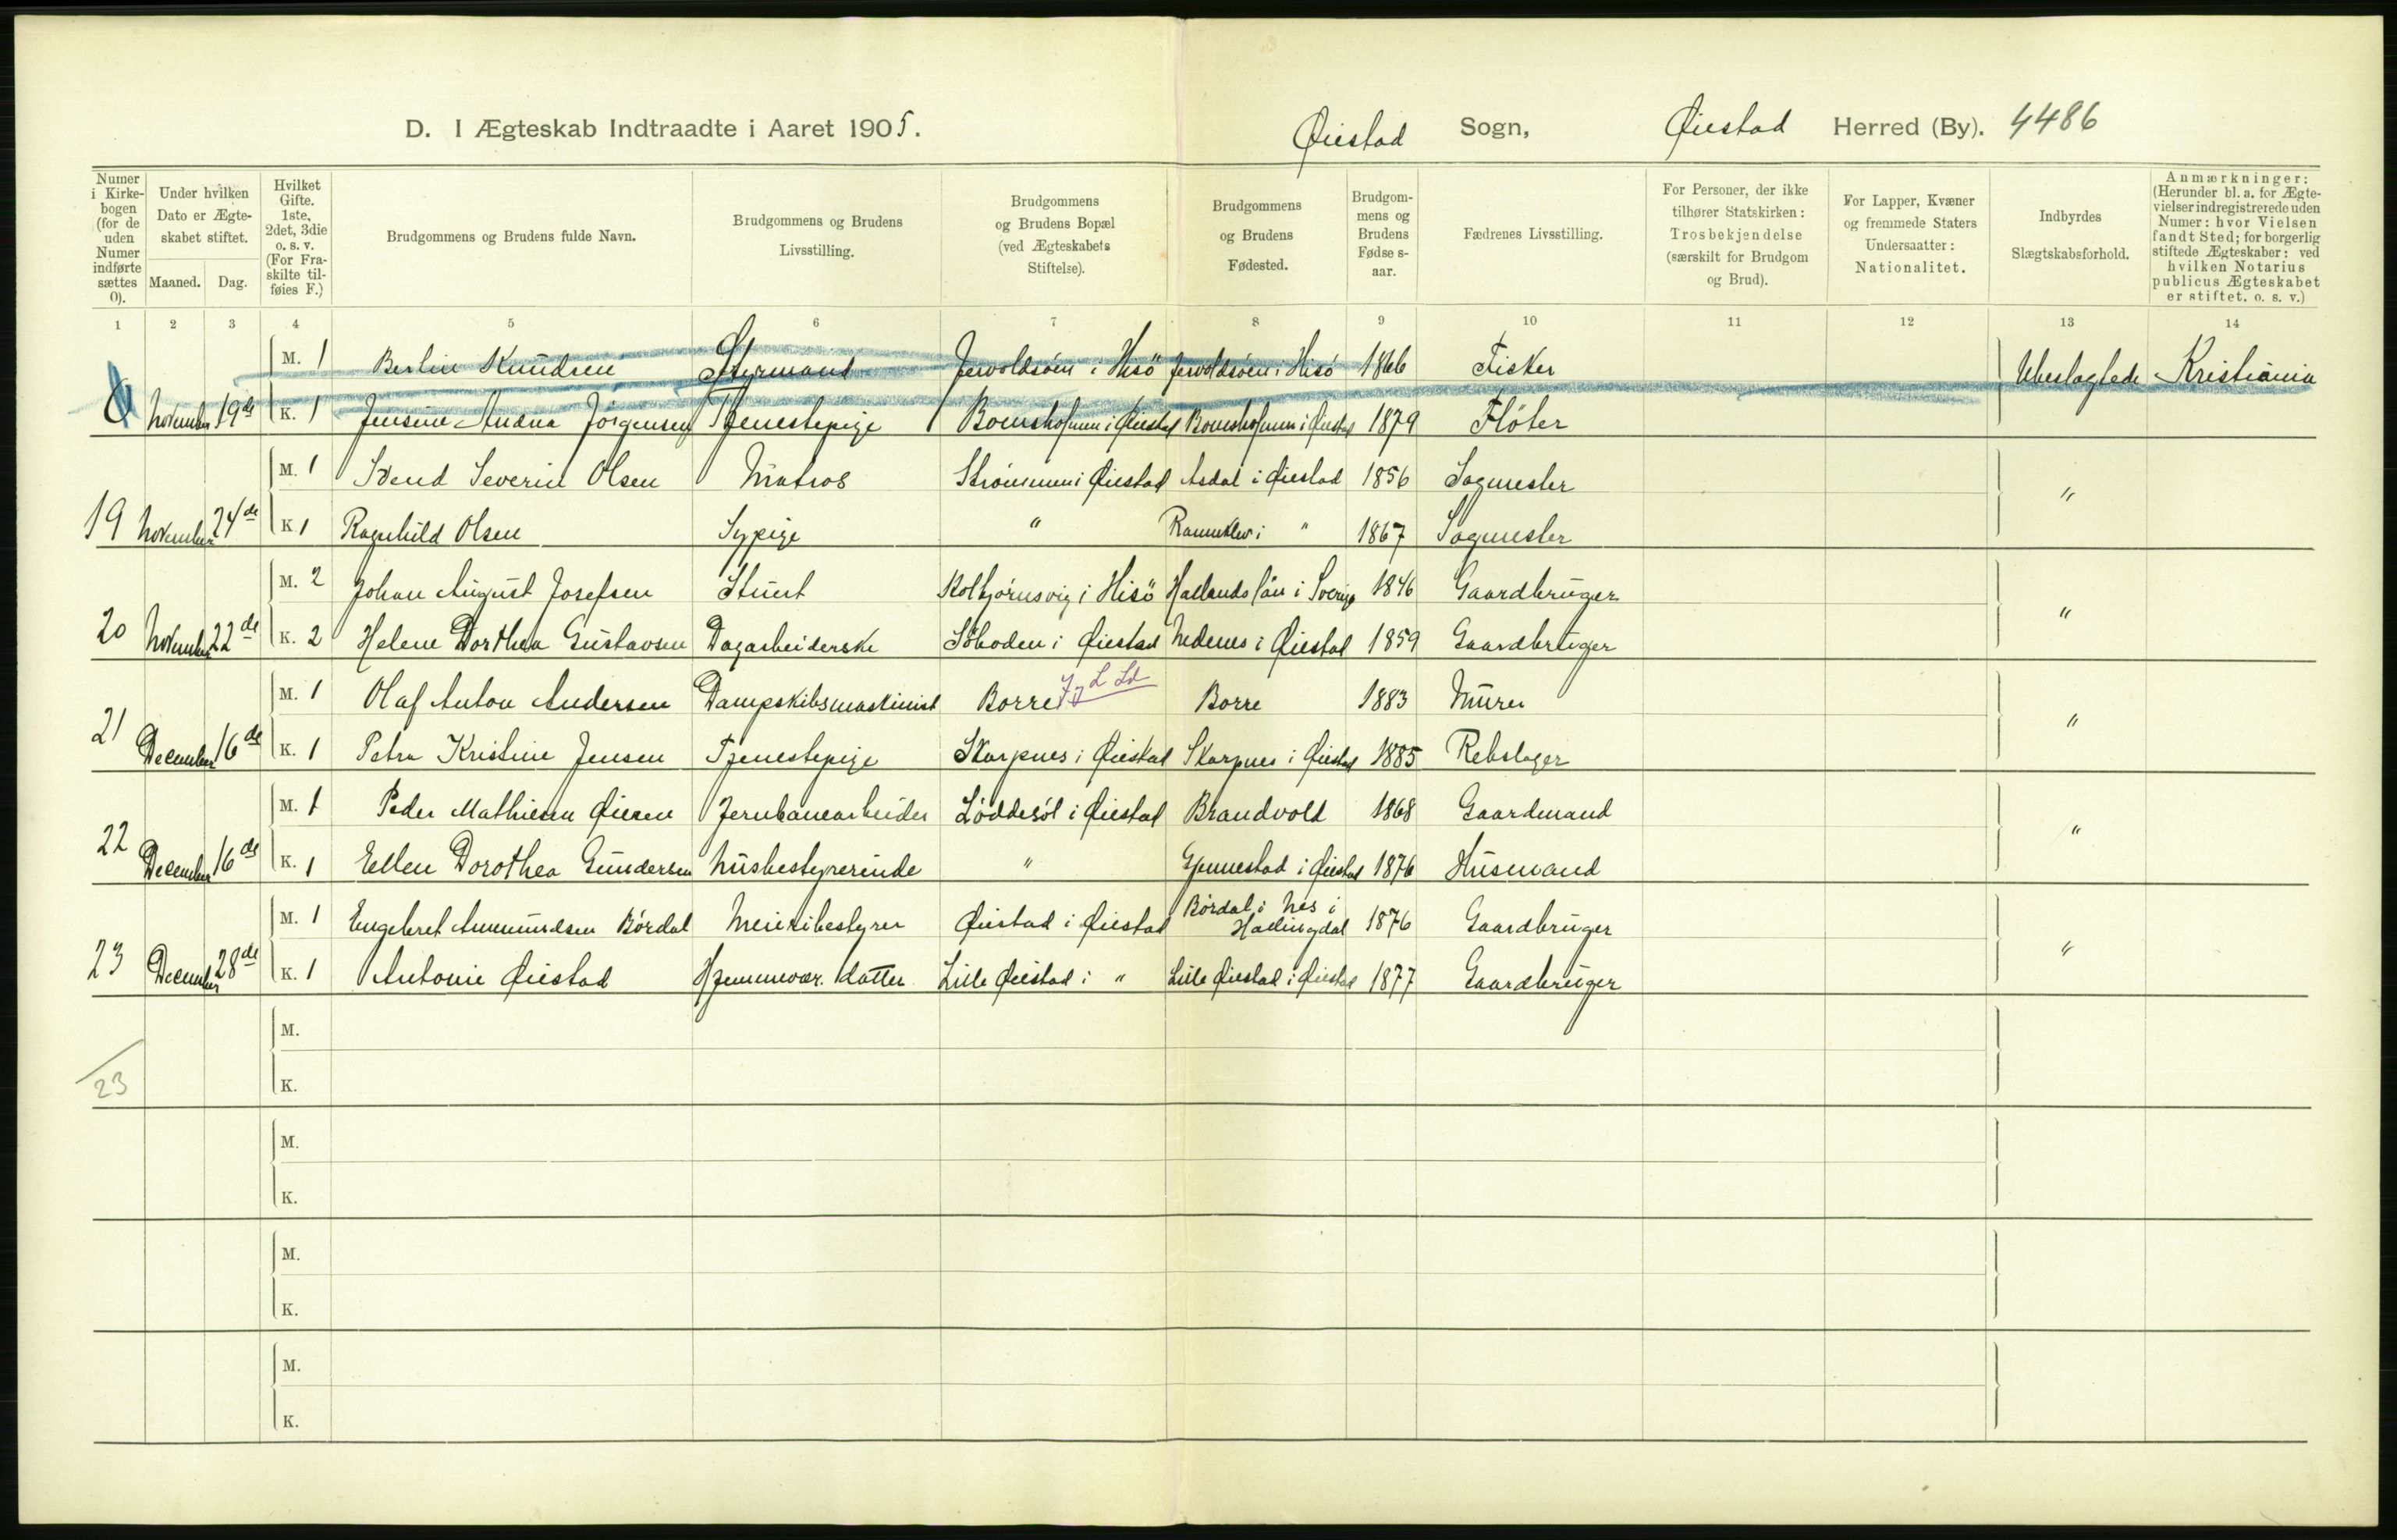 D. I Ægteskab Indtraadte i Aaret 1905. Øiestad Sogn, Øiestad Herred (By). 4486
Numer i Kirke-bogen (for de uden Numer indførte sættes 0).
Under hvilken Dato er Ægte-skabet stiftet.
Maaned. Dag.
Hvilket Gifte. 1ste, 2det, 3die o. s. v. (For Fra-skilte til-føies F.)
Brudgommens og Brudens fulde Navn.
Brudgommens og Brudens Livsstilling.
Brudgommens og Brudens Bopæl (ved Ægteskabets Stiftelse).
Brudgommens og Brudens Fødested.
Brudgom-mens og Brudens Fødses-aar.
Fædrenes Livsstilling.
For Personer, der ikke tilhører Statskirken: Trosbekjendelse (særskilt for Brudgom og Brud).
For Lapper, Kvæner og fremmede Staters Undersaatter: Nationalitet.
Indbyrdes Slægtskabsforhold.
Anmærkninger: (Herunder bl. a. for Ægte-vielser indregistrerede uden Numer: hvor Vielsen fandt Sted; for borgerlig stiftede Ægteskaber: ved hvilken Notarius publicus Ægteskabet er stiftet. o. s. v.)
1 2 3 4 5 6 7 8 9 10 11 12 13 14
M. 1 Berlin Knudsen Styrmand Jervoldsöen i Hisö Jervoldsöen i Hisö 1866 Fisker Ubeslægtede Kristiania
0 November 19de K. 1 Jensine Andrea Jörgensen Tjenestepige i Øiestad i Øiestad 1879 Flöter
M. 1 Svend Severin Olsen Matros Strömmen i Øiestad Asdal i Øiestad 1856 Sagmester "
19 November 24de K 1 Ragnhild Olsen Sypige " Rannekleiv i " 1867 Sagmester
M. 2 Johan August Josefsen Stuert Kolbjörnsvig i Hisö Hallands län i Sverige 1846 Gaardbruger "
20 November 22de K. 2 Helene Dorthea Gustavsen Dagarbeiderske Söboden i Øiestad Nedenes i Øiestad 1859 Gaardbruger
M. 1 Olaf Anton Andersen Dampskibsmaskinist Borre Borre 1883 Murer "
21 December 16de K. 1 Petra Kristine Jensen Tjenestepige Skarpnes i Øiestad Skarpnes i Øiestad 1885 Rebslager
M. 1 Peder Mathiesen Øiesen Jernbanearbeider Löddesöl i Øiestad Brandvold 1868 Gaardmand "
22 December 16de K. 1 Ellen Dorothea Gundersen Husbestyrerinde " Gjennestad i Øiestad 1876 Husmand
M. 1 Engebret Ammundsen Bördal Meieribestyrer Øiestad i Øiestad Bördal i Nes i Hallingdal 1876 Gaardbruger "
23 December 28de K. 1 Antonie Øiestad Hjemmevær. datter Lille Øiestad i " Lille Øiestad i Øiestad 1877 Gaardbruger
M.
23 K.
M.
K.
M.
K.
M.
K.